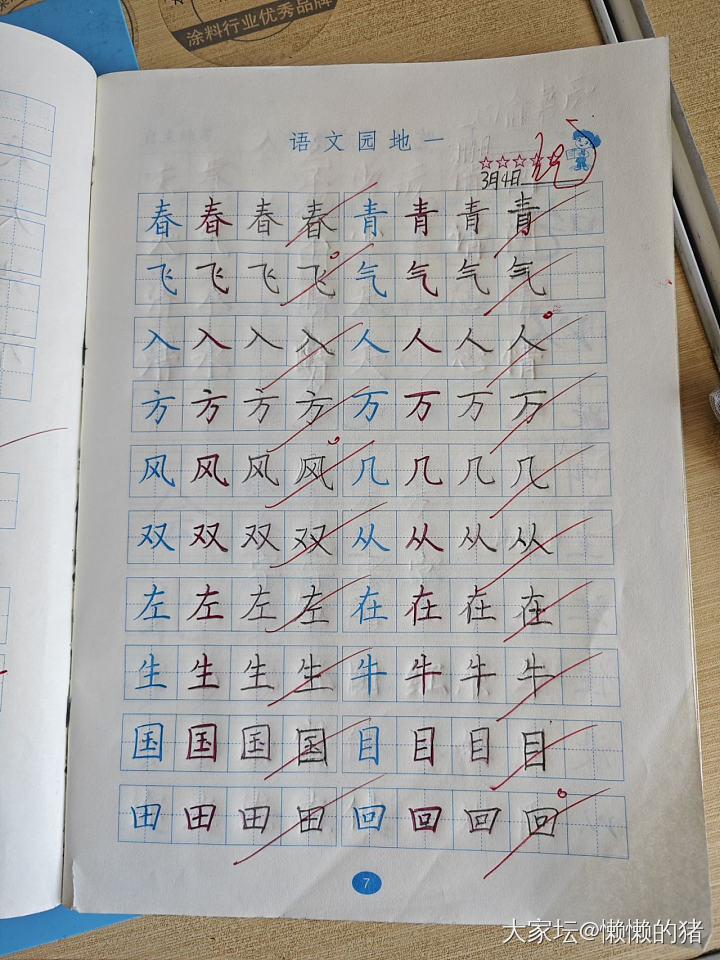 涂料行业优秀品牌
语文园地一
3月4日
春春春春青青青青
飞飞飞飞气气气气
入入入入人人人人
方方方方万万万万
风风风风几几几几
双双双双从从从从
左左左左在在在在
生生生生牛牛牛牛
国国国国目目目目
田田田田回回回回
7
大家坛@懒懒的猪